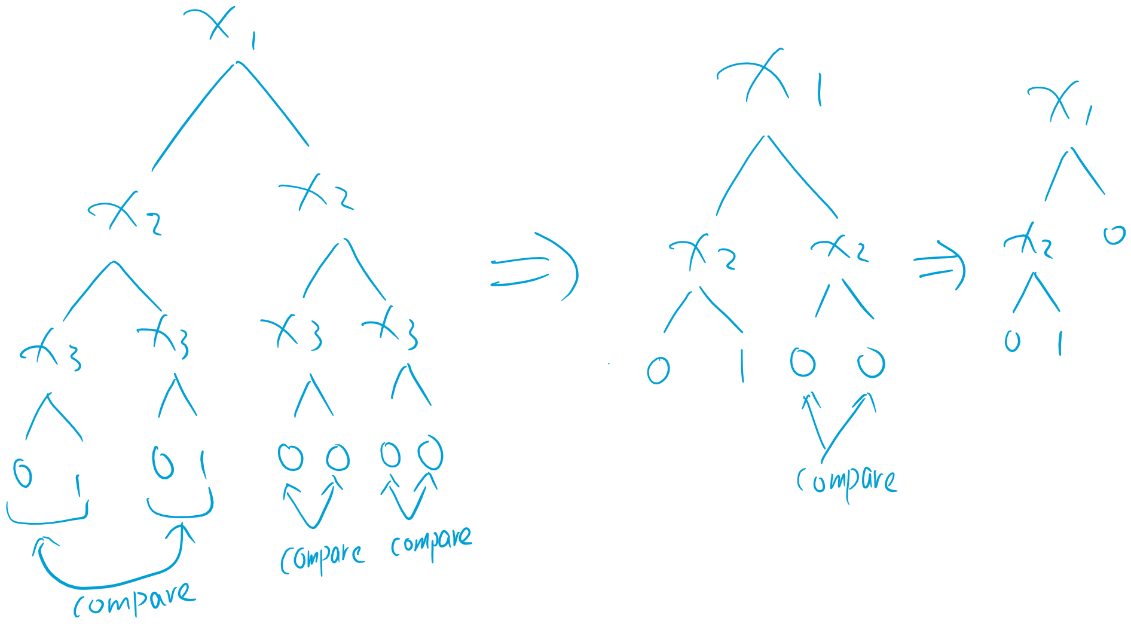 x1
x2 x2
x3 x3 x3 x3
0 1 0 1 0 0 0 0
compare compare
compare
⇒
x1
x2 x2
0 1 0 0
compare
⇒
x1
x2 0
0 1